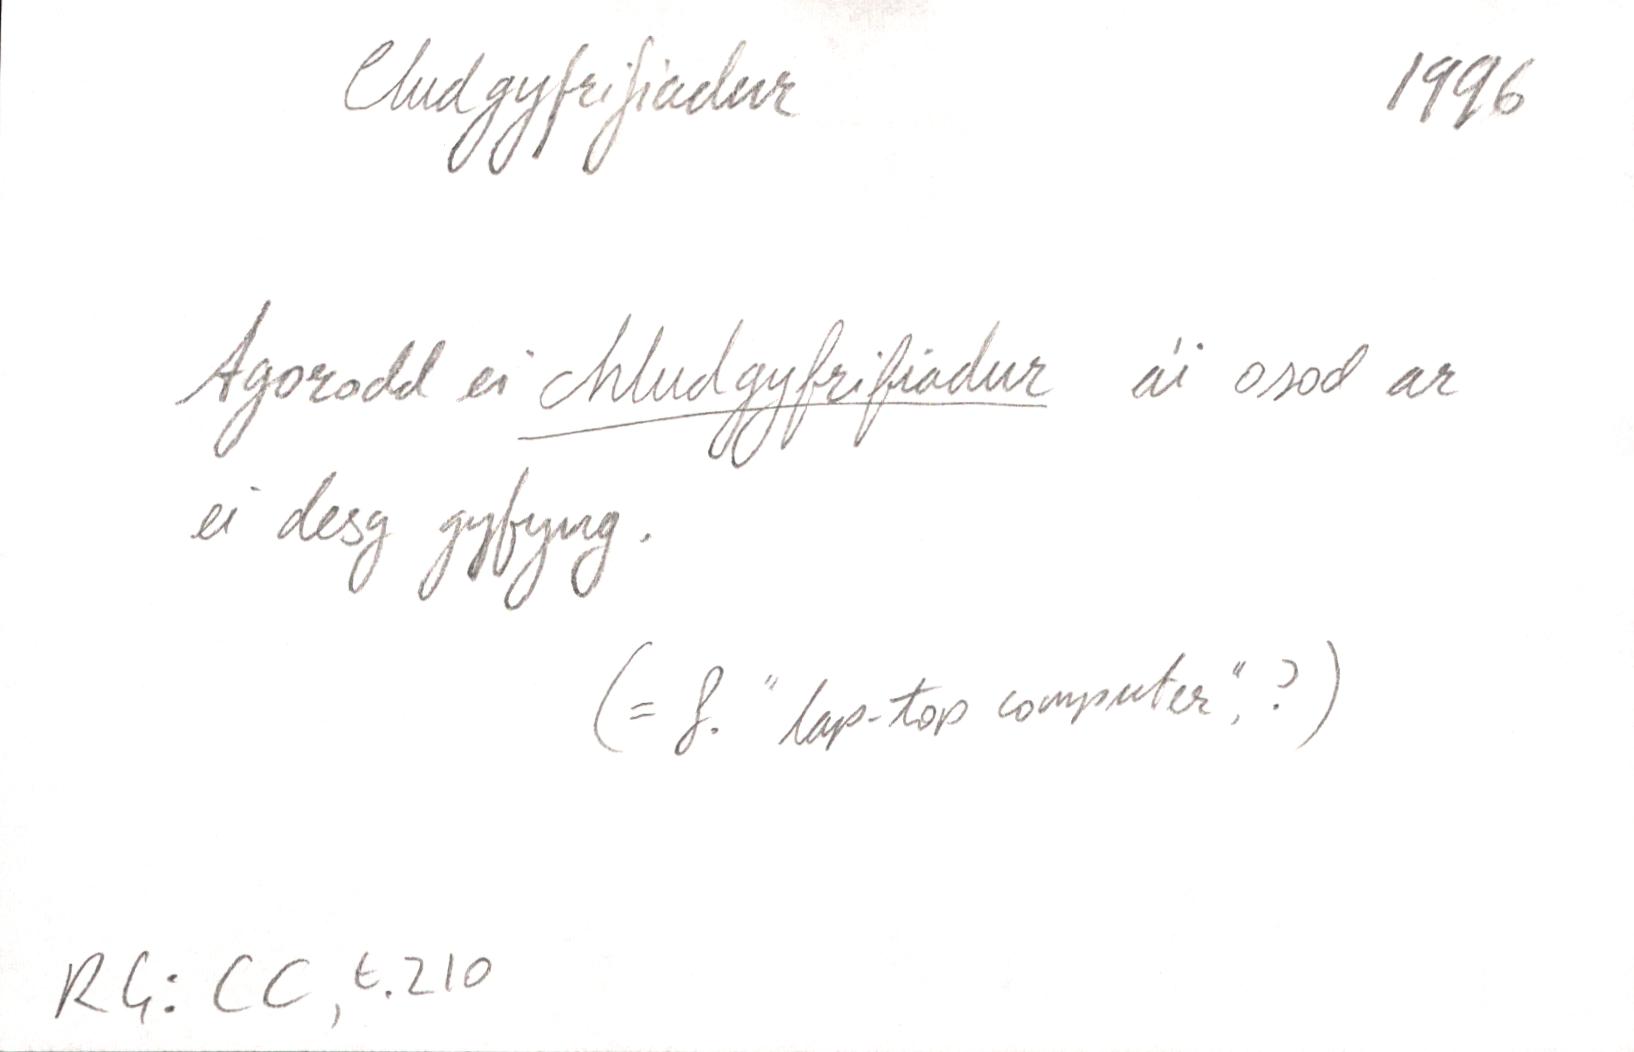 Cludgyfrifiadur 1996
Agorodd ei chludgyfrifiadur a'i osod ar
ei desg gyfyng.
(= S. "lap-top computer", ?)
RG: CC, t. 210